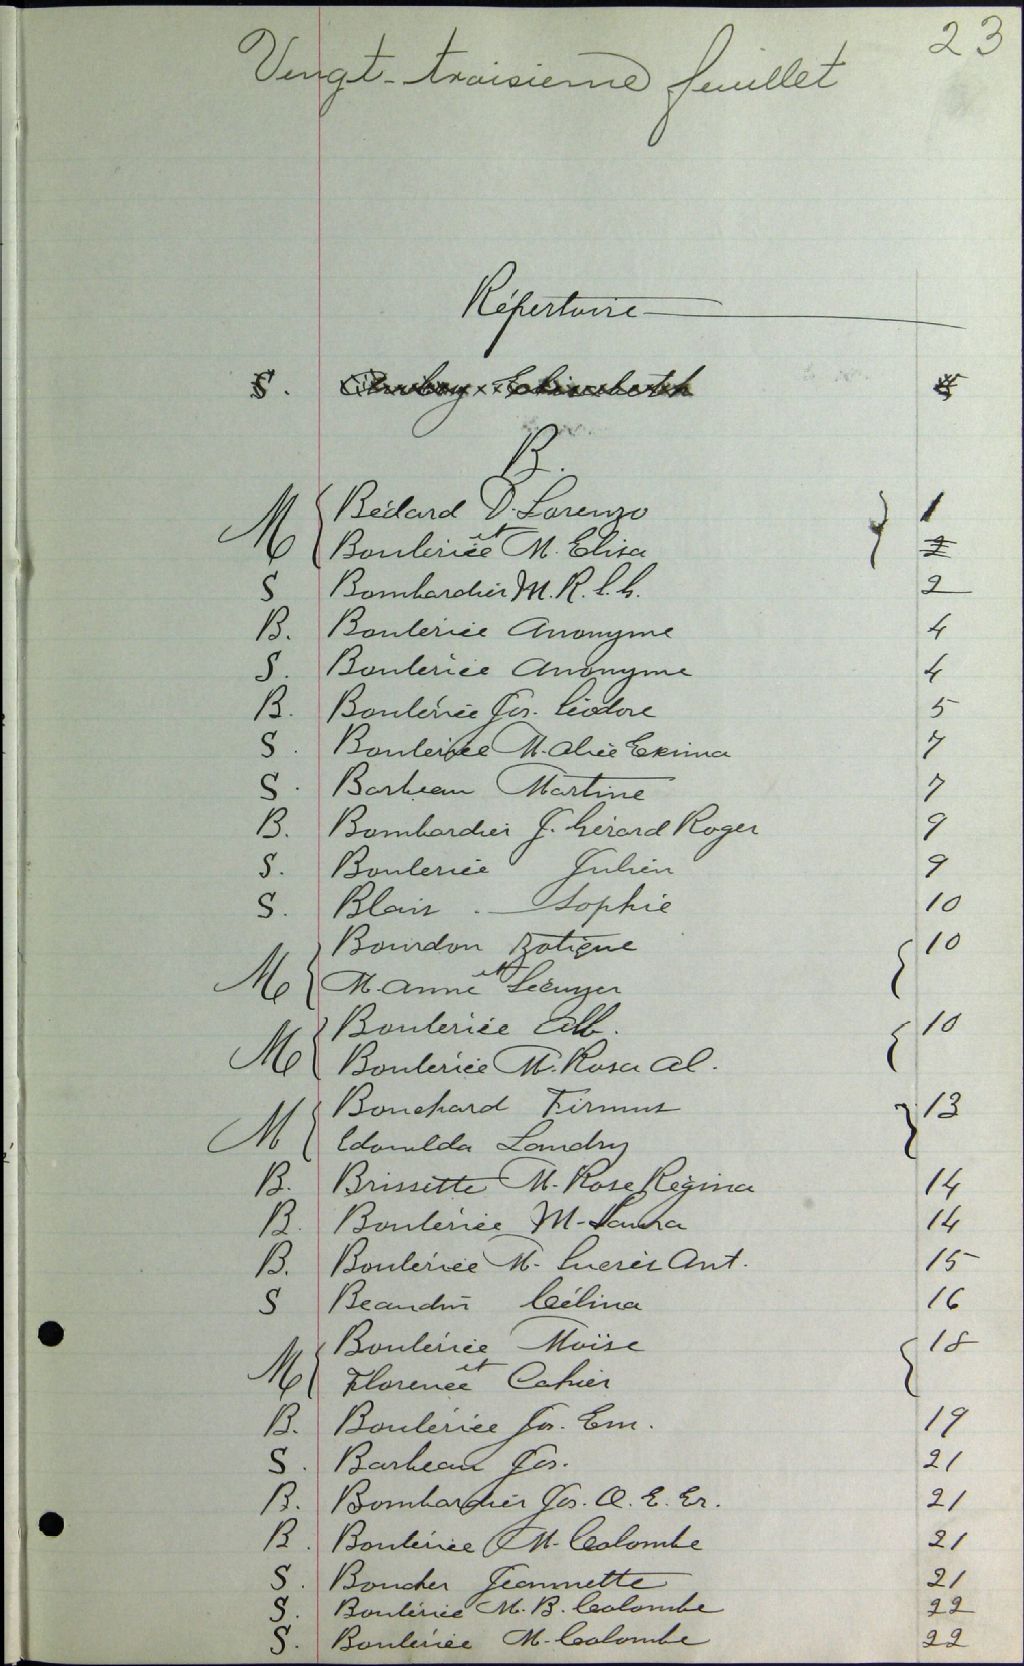 23
Vingt-troisieme feuillet
Répertoire
S.
B.
M { Bédard D. Lorenzo } 1
et
Boulériée M. Elisa 2
S Bombardier M. R. C. G. 2
B. Boulériée Anonyme 4
S. Boulériée Anonyme 4
B. Boulériée Jos. Léodore 5
S. Boulériée M. Alice Exina 7
S. Barbeau Martine 7
B. Bombardier J. Gérard Roger 9
S. Boulériée Julien 9
S. Blain Sophie 10
Bourdon Zotique { 10
M { et
M. Anne Lécuyer
Boulériée Alb. { 10
M { Boulériée M. Rosa Al.
Bouchard Firmus } 13
M { Edouilda Landry
B. Brissette M. Rose Régina 14
B. Boulériée M. Laura 14
B. Boulériée M. Lucrès Ant. 15
S Beaudin Célina 16
Boulériée Moïse { 18
M { et
Florence Cahier
B. Boulériée Jos. Em. 19
S. Barbeau Jos. 21
B. Bombardier Jos. O. E. Er. 21
B. Boulériée M. Colombe 21
S. Boucher Jeannette 21
S. Boulériée M. B. Colombe 22
S. Boulériée M. Colombe 22